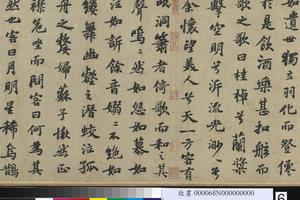 如遺世獨立羽化而登僊
於是飲酒樂甚扣舷而
歌之歌曰桂棹兮蘭槳
擊空明兮泝流光渺〻兮
余懷望美人兮天一方客有
吹洞簫者倚歌而和之其
聲嗚〻然如怨如慕如
泣如訴餘音嫋〻不絕如
縷舞幽壑之潛蛟泣孤
舟之嫠婦蘇子愀然正
襟危坐而問客曰何為其
然也客曰月明星稀烏鵲
故書 000068N000000000